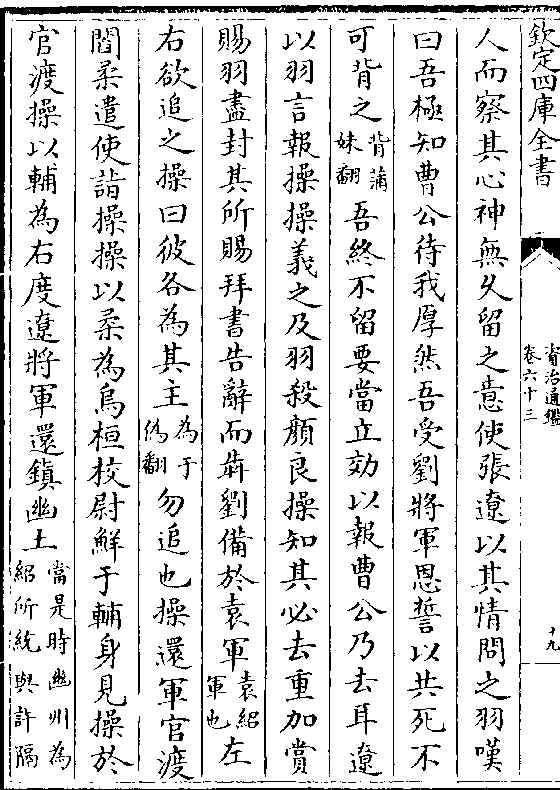 欽定四庫全書
資治通鑑
卷六十三
十九
人而察其心神無久留之意使張遼以其情問之羽嘆
曰吾極知曹公待我厚然吾受劉將軍恩誓以共死不
可背之背蒲妹翻吾終不留要當立効以報曹公乃去耳遼
以羽言報操操義之及羽殺顔良操知其必去重加賞
賜羽盡封其所賜拜書告辭而犇劉備於袁軍袁紹軍也左
右欲追之操曰彼各為其主為于偽翻勿追也操還軍官渡
閻柔遣使詣操操以柔為烏桓校尉鮮于輔身見操於
官渡操以輔為右度遼將軍還鎮幽土當是時幽州為紹所統與許隔